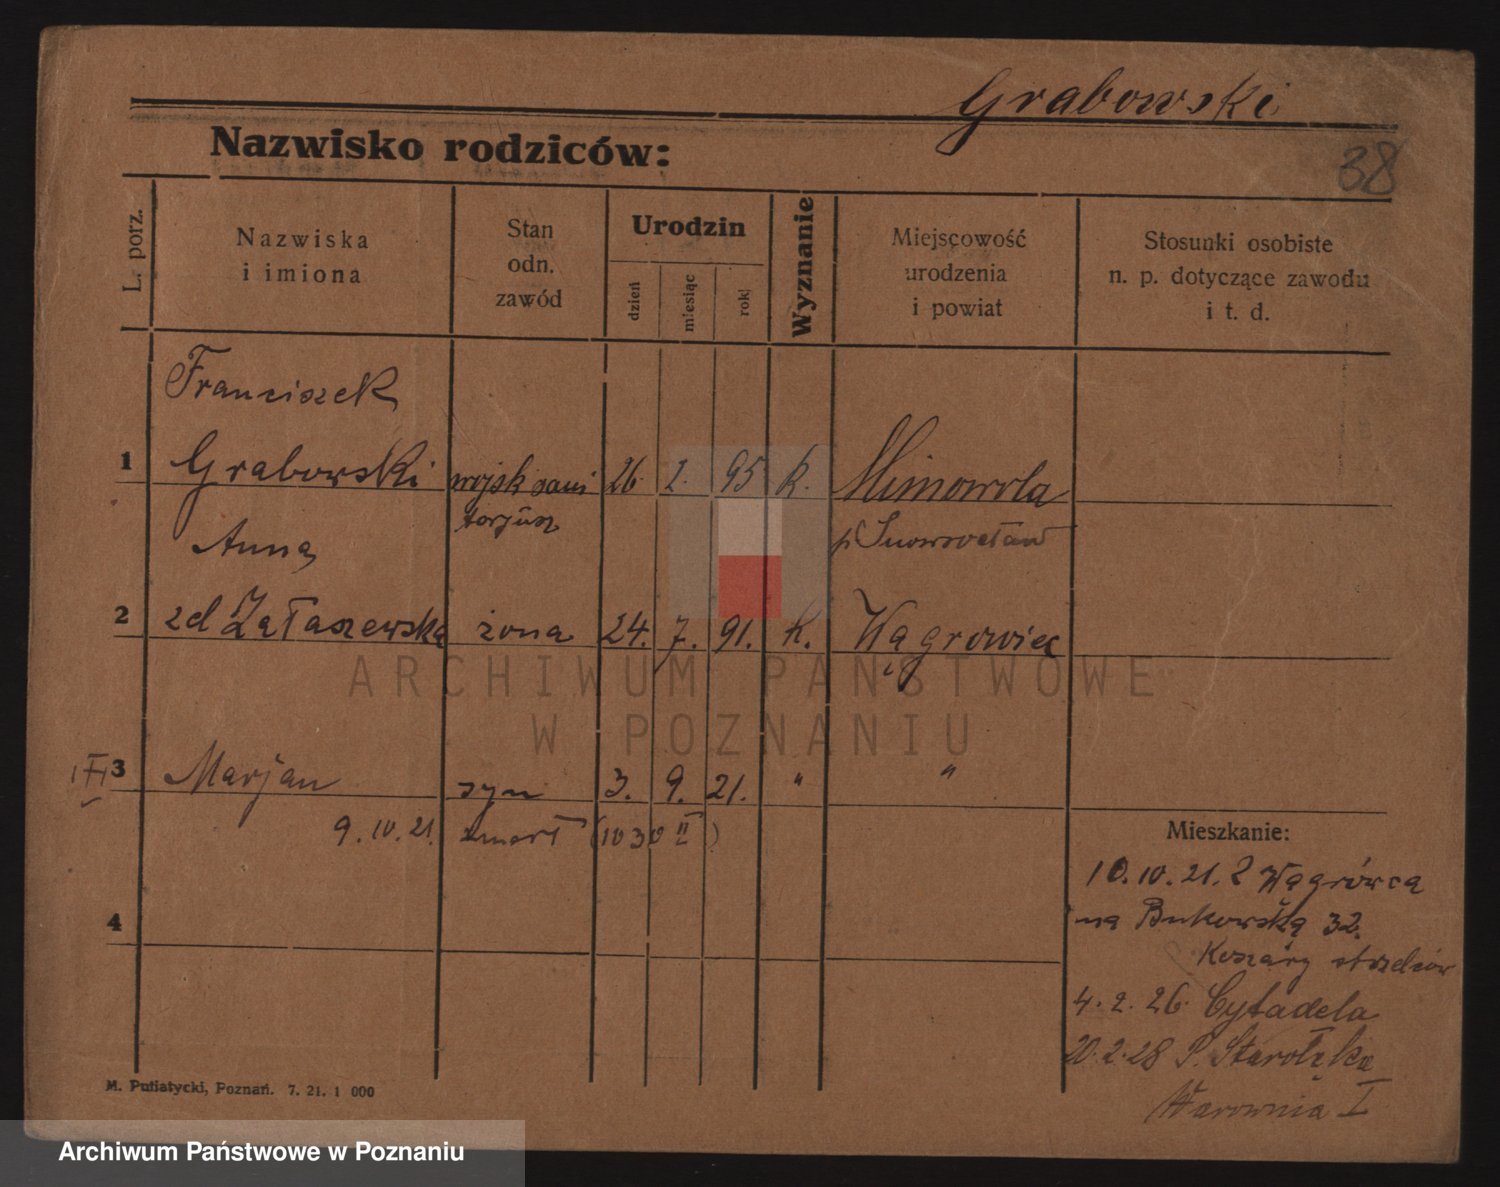 Grabowski
Nazwisko rodziców:
38
L. porz.
Nazwiska
i imiona
Stan
odn.
zawód
Urodzin
dzień
miesiąc
rok
Wyznanie
Miejscowość
urodzenia
i powiat
Stosunki osobiste
n. p. dotyczące zawodu
i t. d.
Franciszek
1 Grabowski wojsk sani 26. 2. 95 k. Mimowola
torjusz p Inowrocław
Anna
2 zd Załaszewska żona 24. 7. 91. k. Wągrowiec
3 Marjan syn 3. 9. 21. " "
9.10.21. zmarł (1030 II)
4
Mieszkanie:
10.10.21. z Wągrówca
na Bukowską 32.
Koszary strzelców
4.2.26. Cytadela
20.2.28 P. Starołęka
Warownia I
M. Putiatycki, Poznań. 7. 21. 1 000
ARCHIWUM PAŃSTWOWE
W POZNANIU
Archiwum Państwowe w Poznaniu